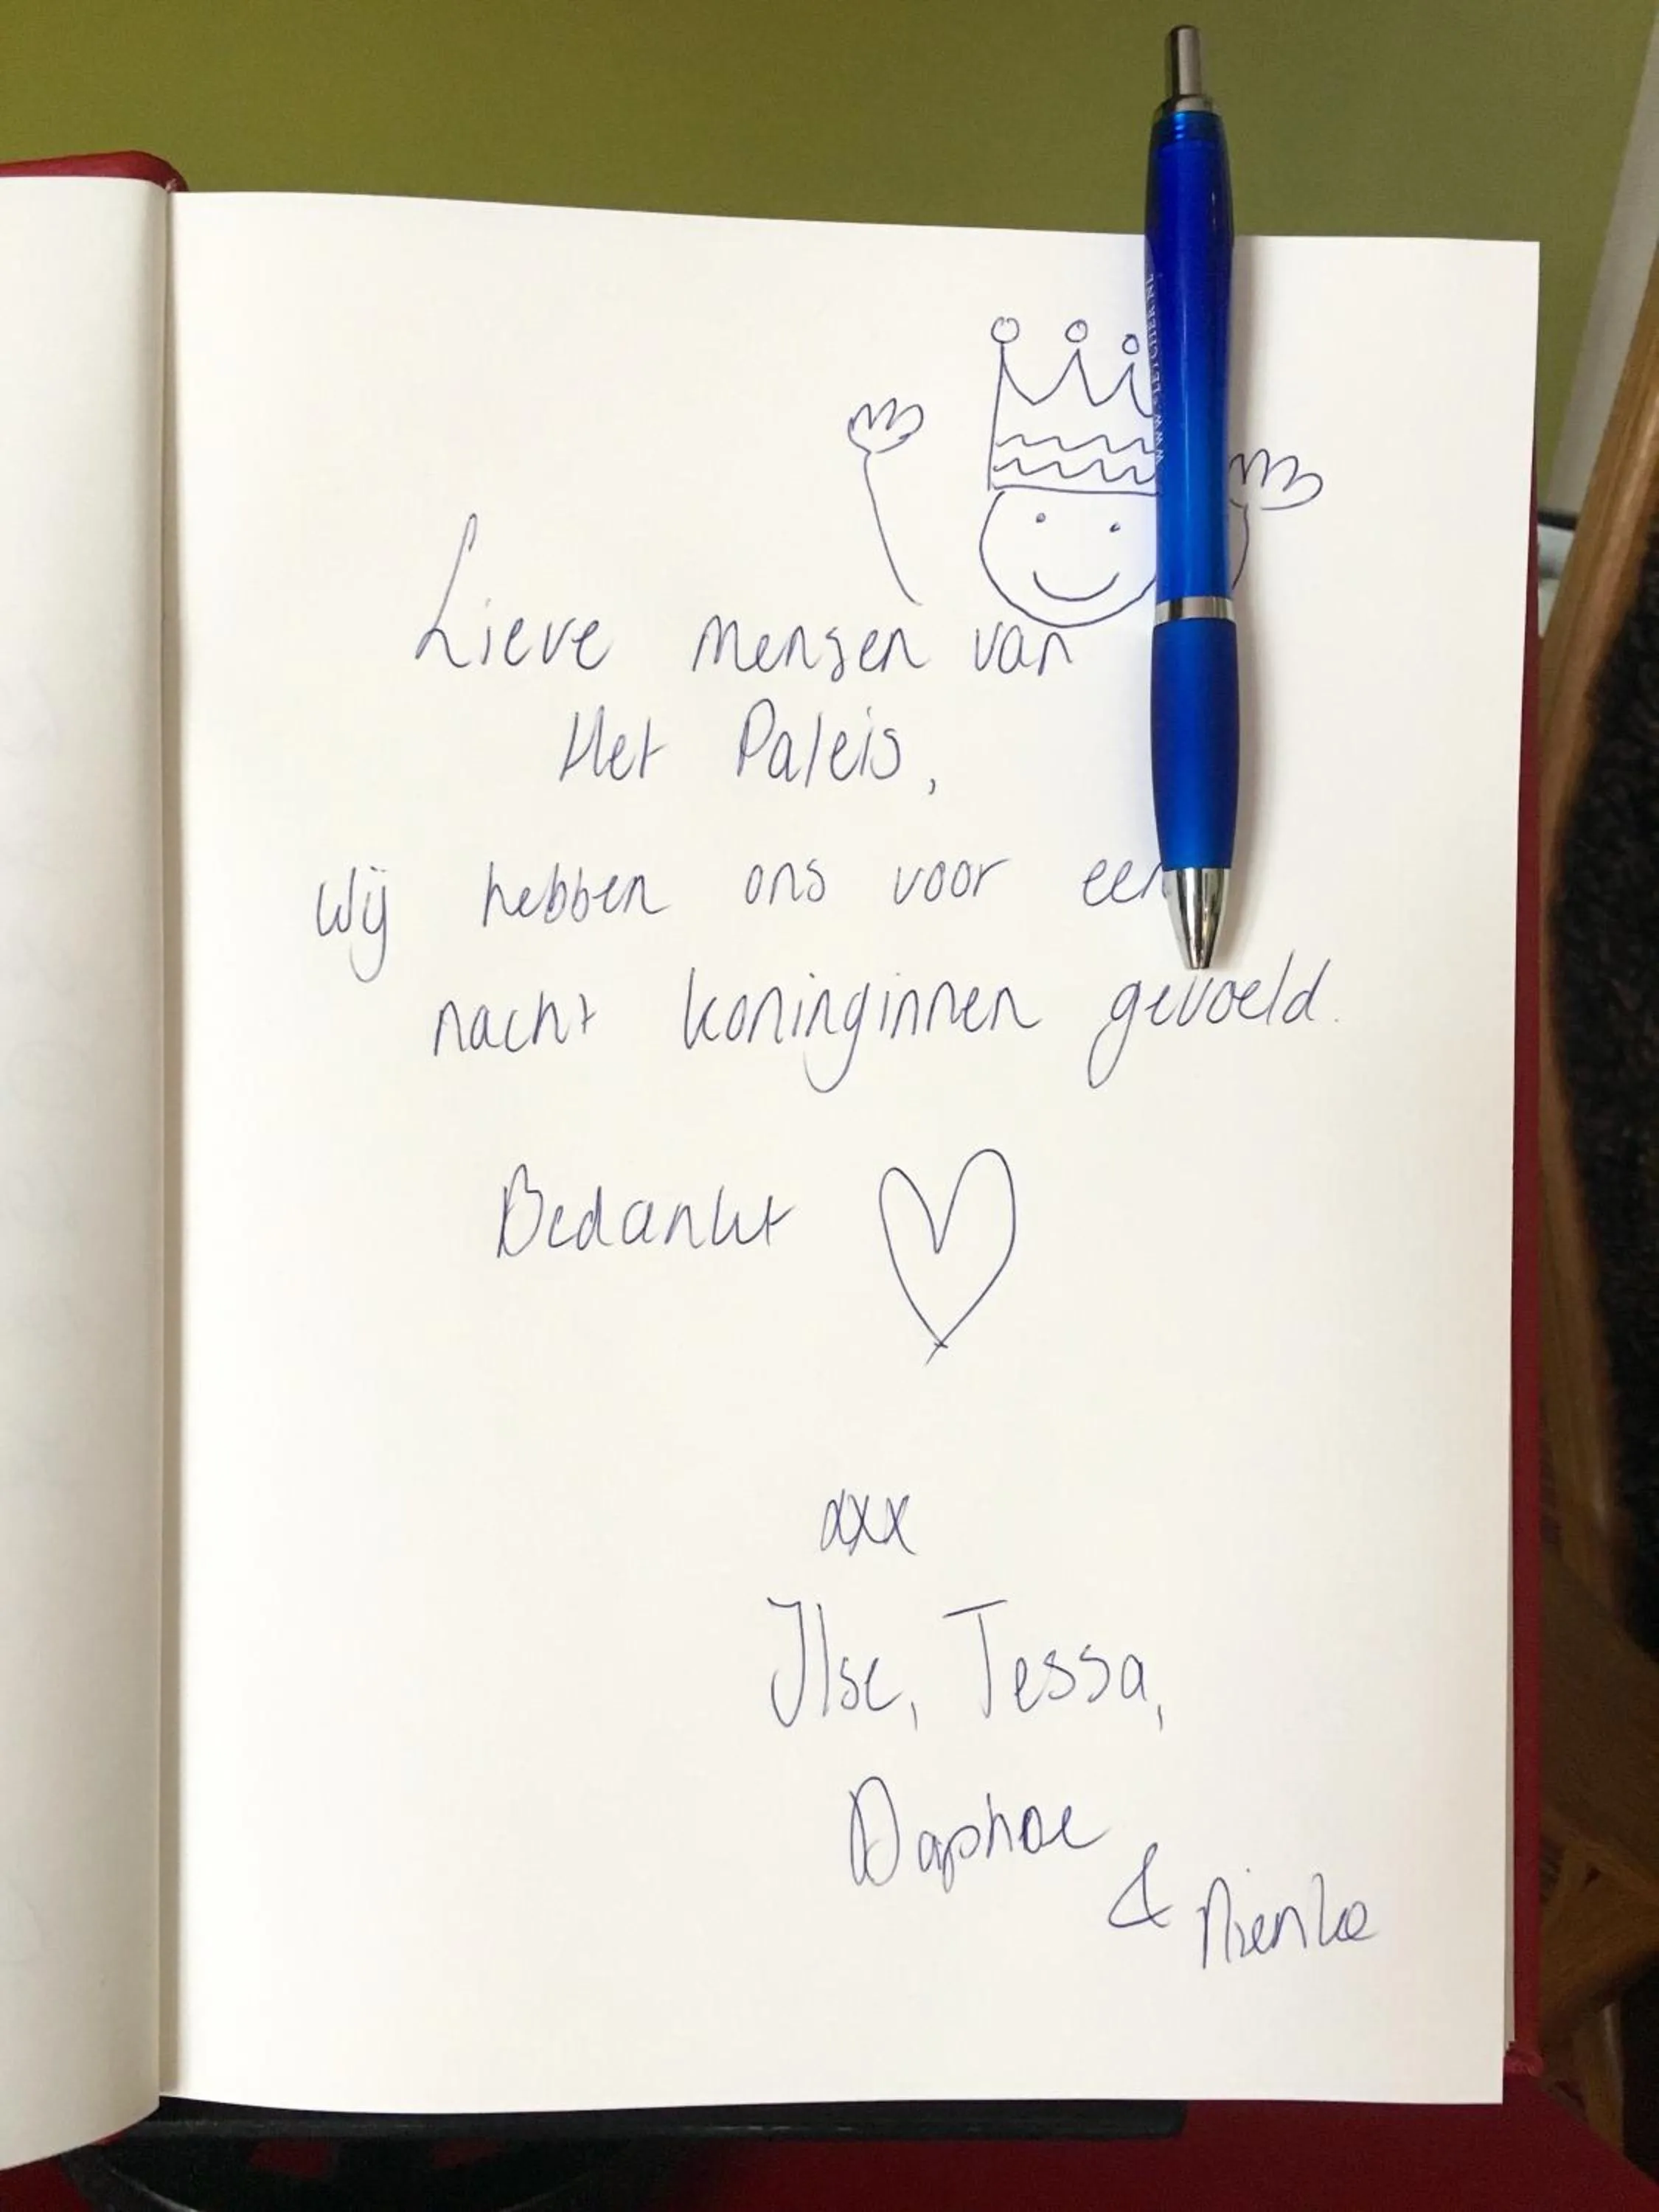 WWW.FLETCHER.NL
Lieve mensen van
Het Paleis,
Wij hebben ons voor een
nacht koninginnen gevoeld.
Bedankt
xxx
Ilse, Tessa,
Daphne
& Nienke